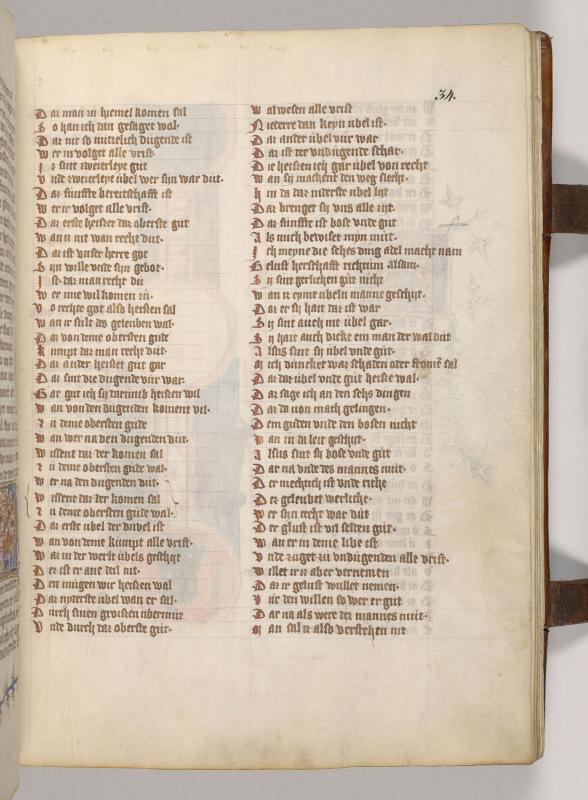 34.
Daz man in hiemel komen sal
So han ich dan gesaget wal.
Daz mir so nutzelich dugende ist
Wer in volget alle vrist.
Iz sint zweierleye gut
Vnde zweierleye ubel wer syn war dut.
Daz funffte bereitschafft ist
Wer ir volget alle vrist.
Daz erste heisset daz oberste gut
Wan iz nit wan recht dut.
Daz ist vnser herre got
Syn wille vnde syn gebot.
Ist daz man recht dut
Wer zme wil komen zu
So rechte got also heissen sal
Wan ir sult des geleuben wal.
Daz von deme obersten gude
Kumpt daz man recht dut.
Daz ander heisset gut gar
Daz sint die dugende vur war.
Gar gut ich sy darumb heissen wil
Wan von den dugenden koment vil.
Zu deme obersten gude
Wan wer na den dugenden dut.
Wissent daz der komen sal
Zu deme obersten gude wal.
Wer na den dugenden dut.
Wissent daz der komen sal
Zu deme obersten gude wal.
Daz erste ubel der duvel ist
Wan von deme kumpt alle vrist.
Waz in der werlt ubels geschyt
Dez ist er ane deil nit.
Den mugen wir heissen wal
Daz nyderste ubel wan er sal.
Durch sinen groissen ubermut
Vnde durch daz oberste gut.
Wal wesen alle vrist
Niederre dan keyn ubel ist.
Daz ander ubel vur war
Daz ist der vndugende schar.
Die heissen ich gar ubel von recht
Wan sy machent den weg slecht.
Hin da daz niderste ubel lyt
Daz brenget sy vns alle zijt.
Daz funffte ist bose vnde gut
Als mich bewiset myn mut.
Ich meyne die sehes ding adel macht nam
Gelust herschafft richtum alsam.
Sy sint gerlichen gut nicht
Wan iz eyme ubeln manne geschyt.
Daz er sy hait daz ist war
Sy sint auch nit ubel gar.
Sy hait auch dicke ein man der wal dut
Alsus sint sy ubel vnde gut.
Mich duncket waz schaden oder fromen sal
Daz daz ubel vnde gut heisse wal.
Daz sage ich an den sehs dingen
Daz da von mach gelingen.
Dem guden vnde den bosen nicht
Wan in da leit geschyt.
Alsus sint sy bose vnde gut
Dar na vnde des mannes mut.
Der mechtich ist vnde riche
Der geleubet werliche.
Wer syn recht war dut
Der glust ist vil selden gut.
Wan er in deme libe ist
Vnde zuget zu vndugenden alle vrist.
Willet ir iz aber vernemen
Daz ir gelust wullet nemen.
Vur den willen so wer er gut
Dar na als were der mannes mut.
Man sal iz also verstehen nit